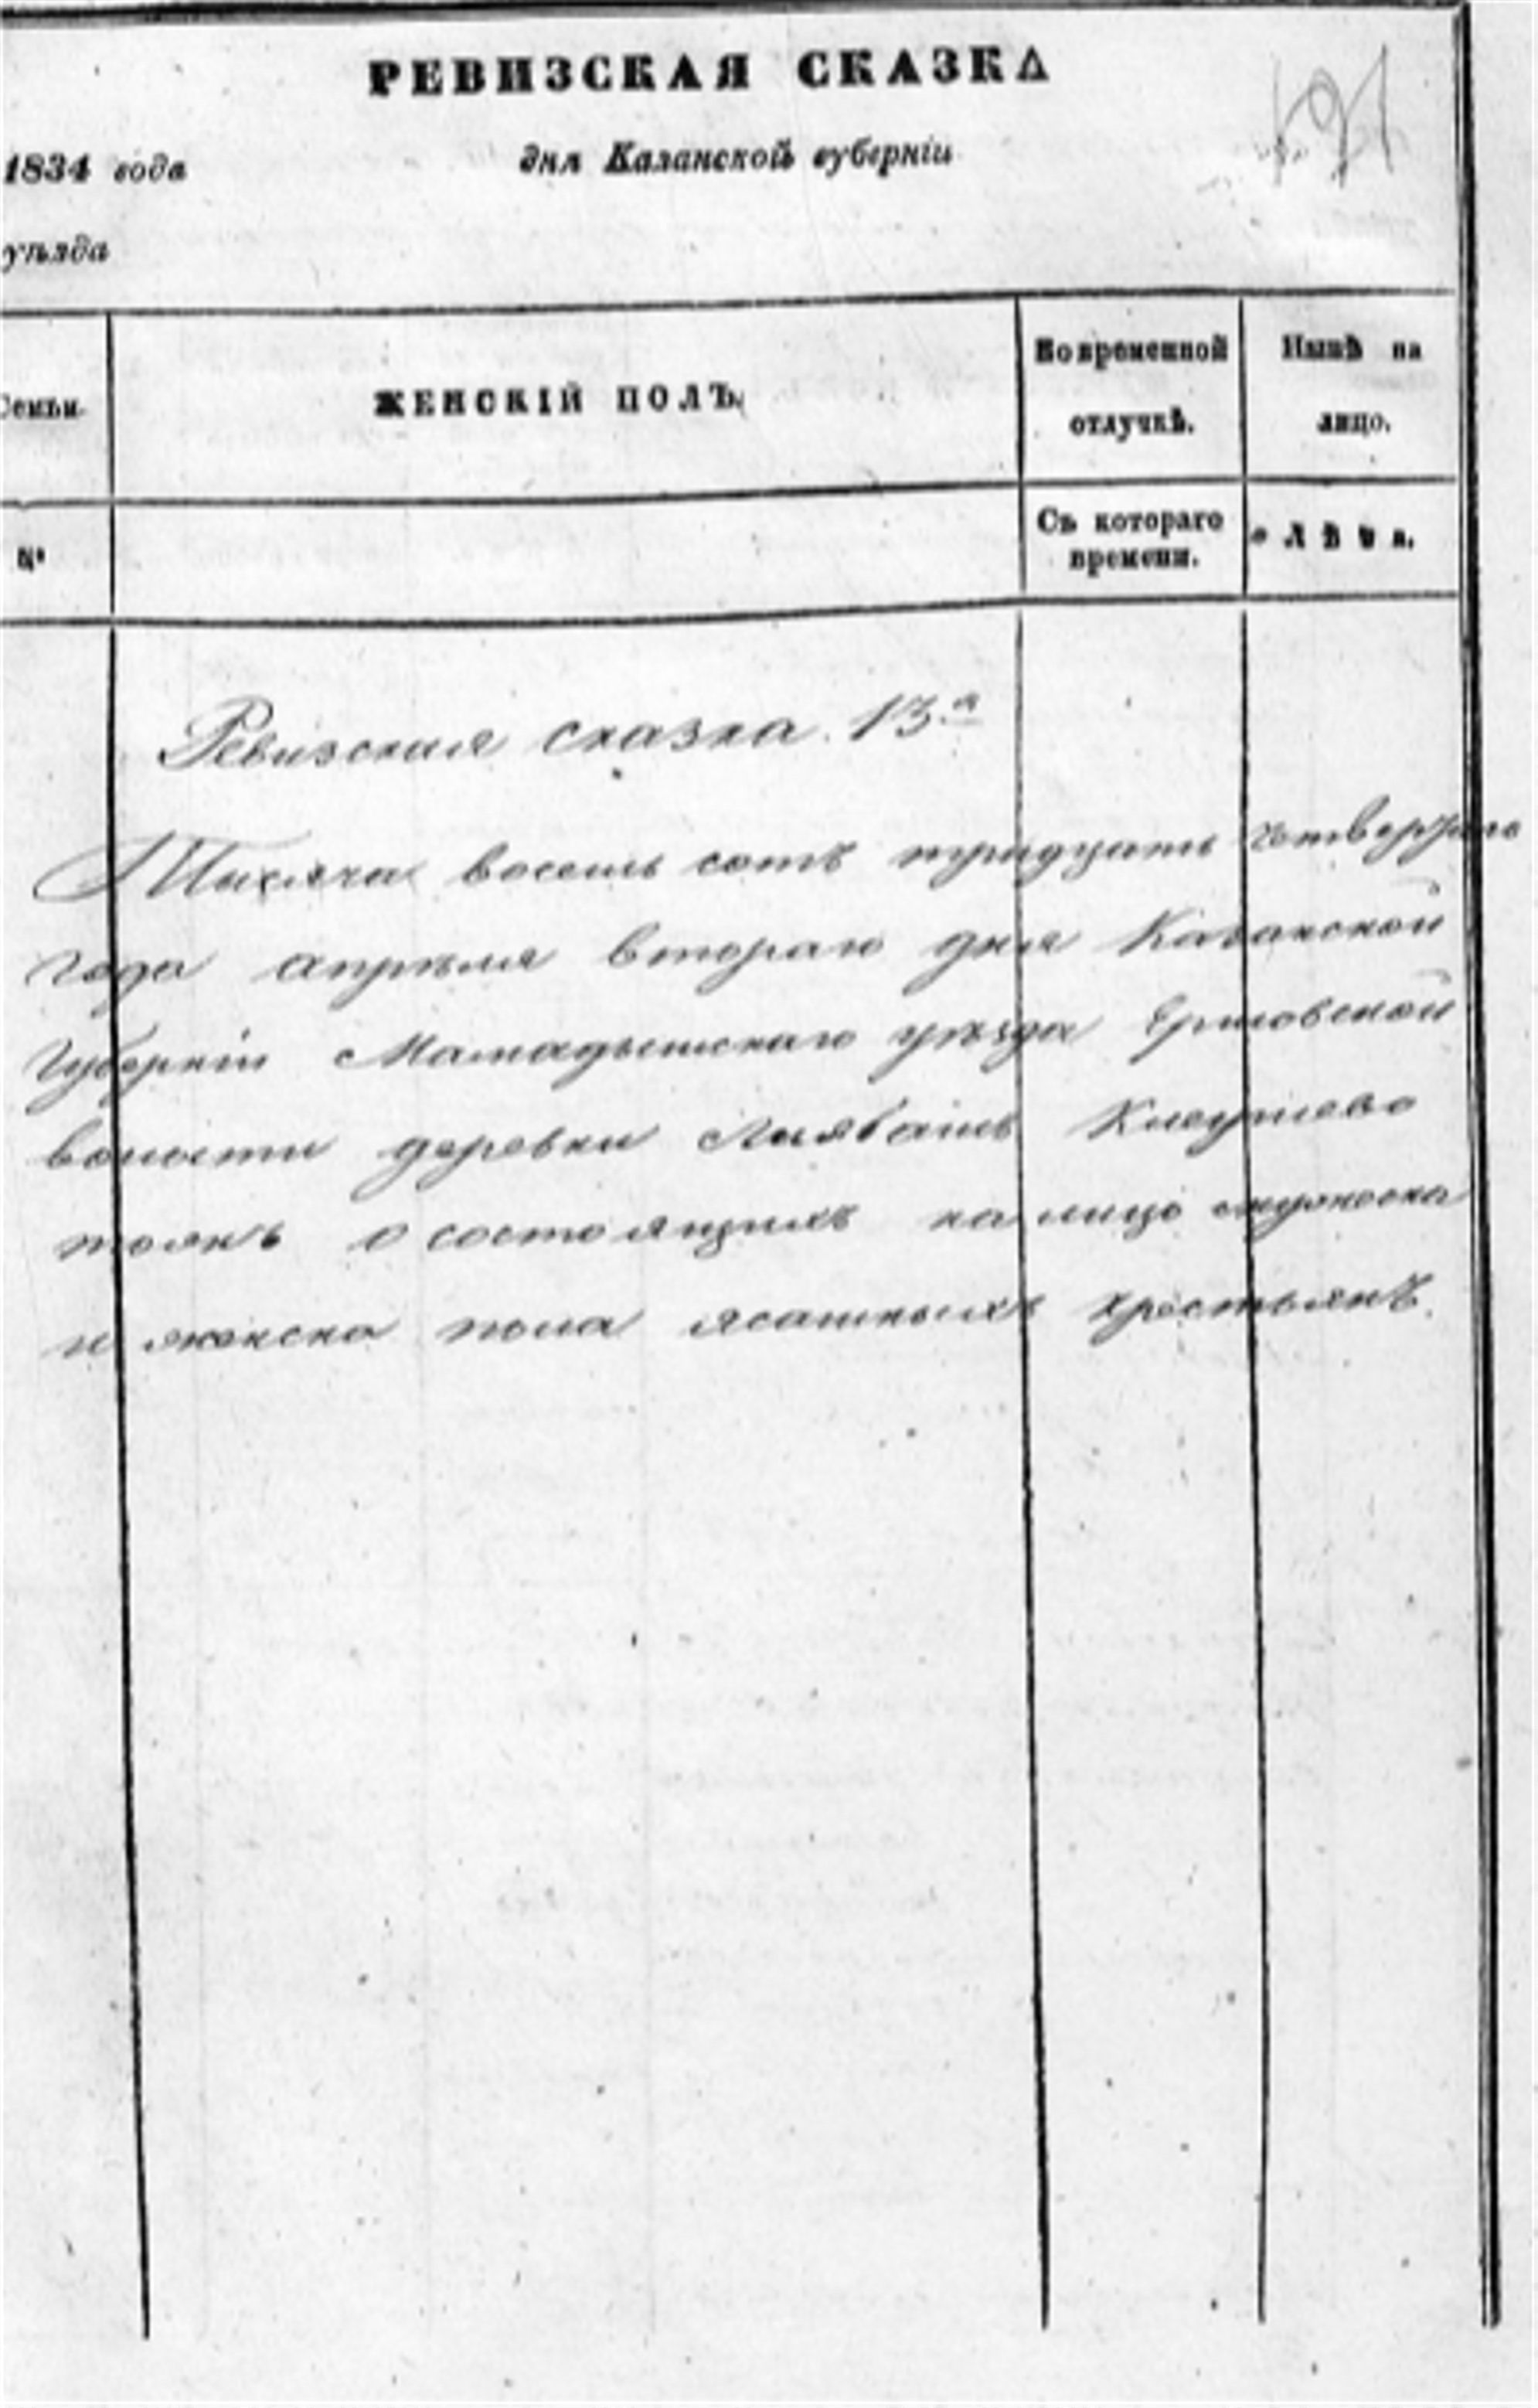 РЕВИЗСКАЯ СКАЗКА
1834 года
дня Казанской губерніи
уѣзда
Семьи
ЖЕНСКІЙ ПОЛЪ.
Во временной отлучкѣ.
Нынѣ на лицо.
№
Съ котораго времени.
Лѣта.
Ревизская сказка 13.я
Тысяча восемь сотъ тридцать четвертаго
года апрѣля втораго дня Казанской
Губерніи Мамадышскаго уѣзда
волости деревни
тожъ о состоящихъ на лицо мужеска
и женска пола ясашныхъ крестьянъ.